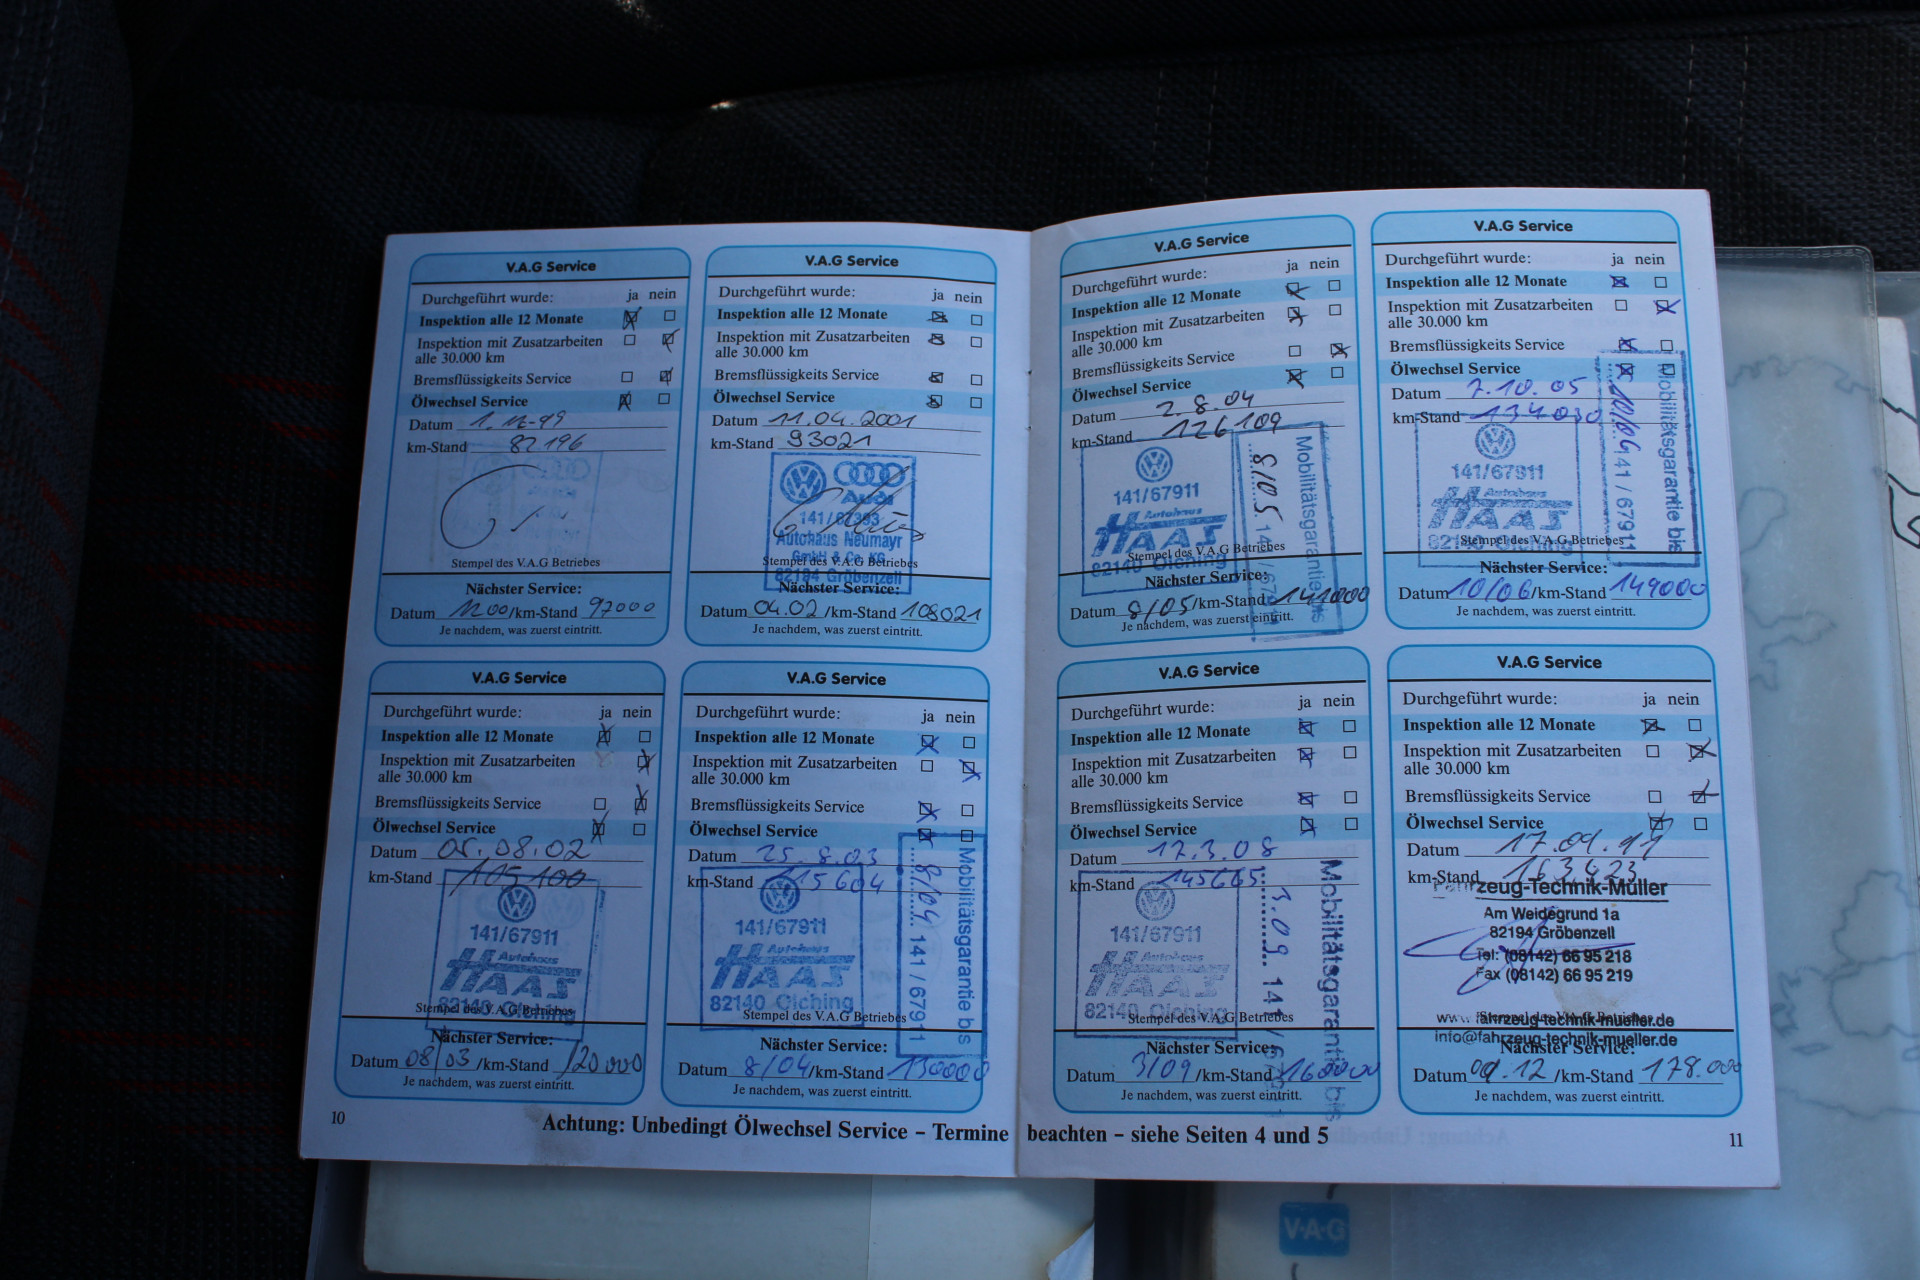 V.A.G Service
Durchgeführt wurde: ja nein
Inspektion alle 12 Monate
Inspektion mit Zusatzarbeiten
alle 30.000 km
Bremsflüssigkeits Service
Ölwechsel Service
Datum
km-Stand 82196
Stempel des V.A.G Betriebes
Nächster Service:
Datum /km-Stand 97000
Je nachdem, was zuerst eintritt.
V.A.G Service
Durchgeführt wurde: ja nein
Inspektion alle 12 Monate
Inspektion mit Zusatzarbeiten
alle 30.000 km
Bremsflüssigkeits Service
Ölwechsel Service
Datum 11.04.2001
km-Stand 93021
Audi
Autohaus Neumayr
GmbH & Co. KG
Stempel des V.A.G Betriebes
82194 Gröbenzell
Nächster Service:
Datum 04.02 /km-Stand 108021
Je nachdem, was zuerst eintritt.
V.A.G Service
Durchgeführt wurde: ja nein
Inspektion alle 12 Monate
Inspektion mit Zusatzarbeiten
alle 30.000 km
Bremsflüssigkeits Service
Ölwechsel Service
Datum 05.08.02
km-Stand 105100
141/67911
Autohaus
HAAS
82140 Olching
Stempel des V.A.G Betriebes
Nächster Service:
Datum 08/03 /km-Stand 120.000
Je nachdem, was zuerst eintritt.
V.A.G Service
Durchgeführt wurde: ja nein
Inspektion alle 12 Monate
Inspektion mit Zusatzarbeiten
alle 30.000 km
Bremsflüssigkeits Service
Ölwechsel Service
Datum 25.8.03
km-Stand 115604
141/67911
Autohaus
HAAS
82140 Olching
Stempel des V.A.G Betriebes
Mobilitätsgarantie bis
8/04 141 / 67911
Nächster Service:
Datum 8/04 /km-Stand 130000
Je nachdem, was zuerst eintritt.
10
Achtung: Unbedingt Ölwechsel Service – Termine beachten – siehe Seiten 4 und 5
V.A.G Service
Durchgeführt wurde: ja nein
Inspektion alle 12 Monate
Inspektion mit Zusatzarbeiten
alle 30.000 km
Bremsflüssigkeits Service
Ölwechsel Service
Datum 2.8.04
km-Stand 126109
141/67911
Autohaus
HAAS
82140 Olching
Stempel des V.A.G Betriebes
Mobilitätsgarantie bis
8/05 141 / 67911
Nächster Service:
Datum 8/05 /km-Stand 141000
Je nachdem, was zuerst eintritt.
V.A.G Service
Durchgeführt wurde: ja nein
Inspektion alle 12 Monate
Inspektion mit Zusatzarbeiten
alle 30.000 km
Bremsflüssigkeits Service
Ölwechsel Service
Datum 7.10.05
km-Stand 134030
141/67911
Autohaus
HAAS
82140 Olching
Stempel des V.A.G Betriebes
Mobilitätsgarantie bis
10/06 141 / 67911
Nächster Service:
Datum 10/06 /km-Stand 149000
Je nachdem, was zuerst eintritt.
V.A.G Service
Durchgeführt wurde: ja nein
Inspektion alle 12 Monate
Inspektion mit Zusatzarbeiten
alle 30.000 km
Bremsflüssigkeits Service
Ölwechsel Service
Datum 17.3.08
km-Stand 145665
141/67911
Autohaus
HAAS
82140 Olching
Stempel des V.A.G Betriebes
Mobilitätsgarantie bis
3.09 141 / 67911
Nächster Service:
Datum 3/09 /km-Stand 160000
Je nachdem, was zuerst eintritt.
V.A.G Service
Durchgeführt wurde: ja nein
Inspektion alle 12 Monate
Inspektion mit Zusatzarbeiten
alle 30.000 km
Bremsflüssigkeits Service
Ölwechsel Service
Datum
km-Stand 163423
Fahrzeug-Technik-Müller
Am Weidegrund 1a
82194 Gröbenzell
Tel: (08142) 66 95 218
Fax (08142) 66 95 219
Stempel des V.A.G Betriebes
www.fahrzeug-technik-mueller.de
info@fahrzeug-technik-mueller.de
Nächster Service:
Datum /km-Stand 178.000
Je nachdem, was zuerst eintritt.
11
V·A·G